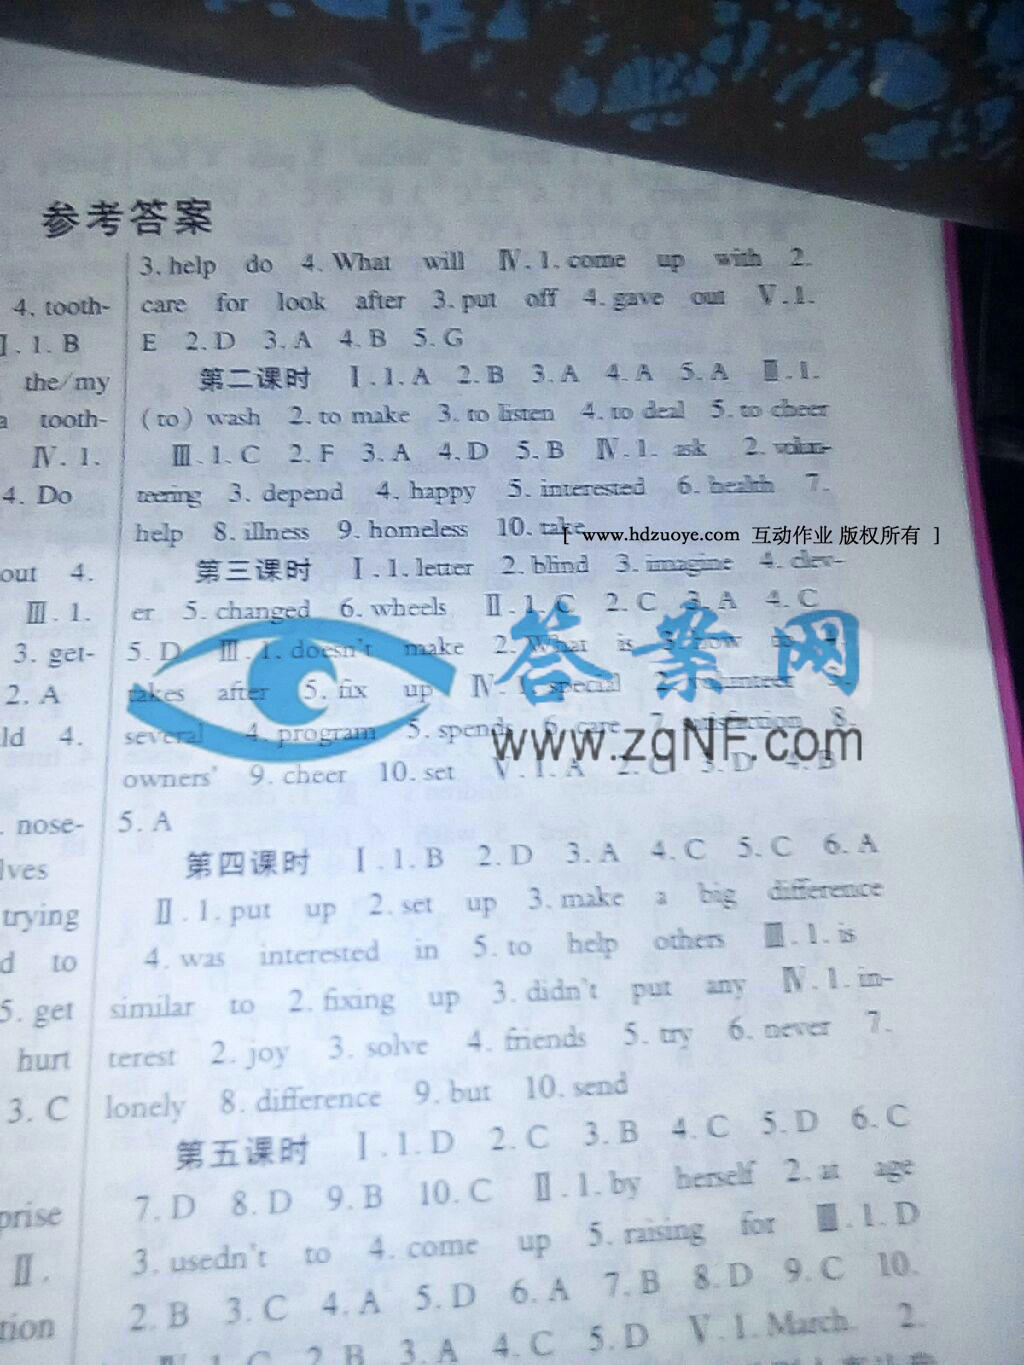 参考答案
4. tooth-
Ⅰ.1.B
the/my
a tooth-
Ⅳ.1.
4. Do
out 4.
Ⅲ.1.
3. get-
2. A
ld 4.
. nose-
lves
trying
d to
5. get
hurt
3. C
prise
Ⅱ.
tion
3. help do 4. What will Ⅳ.1. come up with 2.
care for look after 3. put off 4. gave out Ⅴ.1.
E 2. D 3. A 4. B 5. G
第二课时 Ⅰ.1. A 2. B 3. A 4. A 5. A Ⅱ.1.
(to) wash 2. to make 3. to listen 4. to deal 5. to cheer
Ⅲ.1. C 2. F 3. A 4. D 5. B Ⅳ.1. ask 2. volun-
teering 3. depend 4. happy 5. interested 6. health 7.
help 8. illness 9. homeless 10. take
[ www.hdzuoye.com 互动作业 版权所有 ]
第三课时 Ⅰ.1. letter 2. blind 3. imagine 4. clev-
er 5. changed 6. wheels Ⅱ.1. C 2. C 3. A 4. C
5. D Ⅲ.1. doesn't make 2. What is 3. how to
takes after 5. fix up Ⅳ.1. special 2. volunteer 3.
several 4. program 5. spends 6. care 7. satisfaction 8.
owners' 9. cheer 10. set Ⅴ.1. A 2. C 3. D 4. B
答案网
www.zqNF.com
5. A
第四课时 Ⅰ.1. B 2. D 3. A 4. C 5. C 6. A
Ⅱ.1. put up 2. set up 3. make a big difference
4. was interested in 5. to help others Ⅲ.1. is
similar to 2. fixing up 3. didn't put any Ⅳ.1. in-
terest 2. joy 3. solve 4. friends 5. try 6. never 7.
lonely 8. difference 9. but 10. send
第五课时 Ⅰ.1. D 2. C 3. B 4. C 5. D 6. C
7. D 8. D 9. B 10. C Ⅱ.1. by herself 2. at age
3. usedn't to 4. come up 5. raising for Ⅲ.1. D
2. B 3. C 4. A 5. D 6. A 7. B 8. D 9. C 10.
Ⅳ.1. C 2. B 3. A 4. C 5. D Ⅴ.1. March. 2.